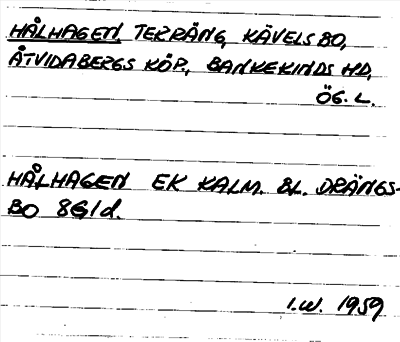 HÅLHAGEN, TERRÄNG, KÄVELSBO,
ÅTVIDABERGS KÖP., BANKEKINDS HD,
ÖG. L.
HÅLHAGEN EK KALM. BL. DRÄNGS-
BO 8G1d.
I.W. 1959